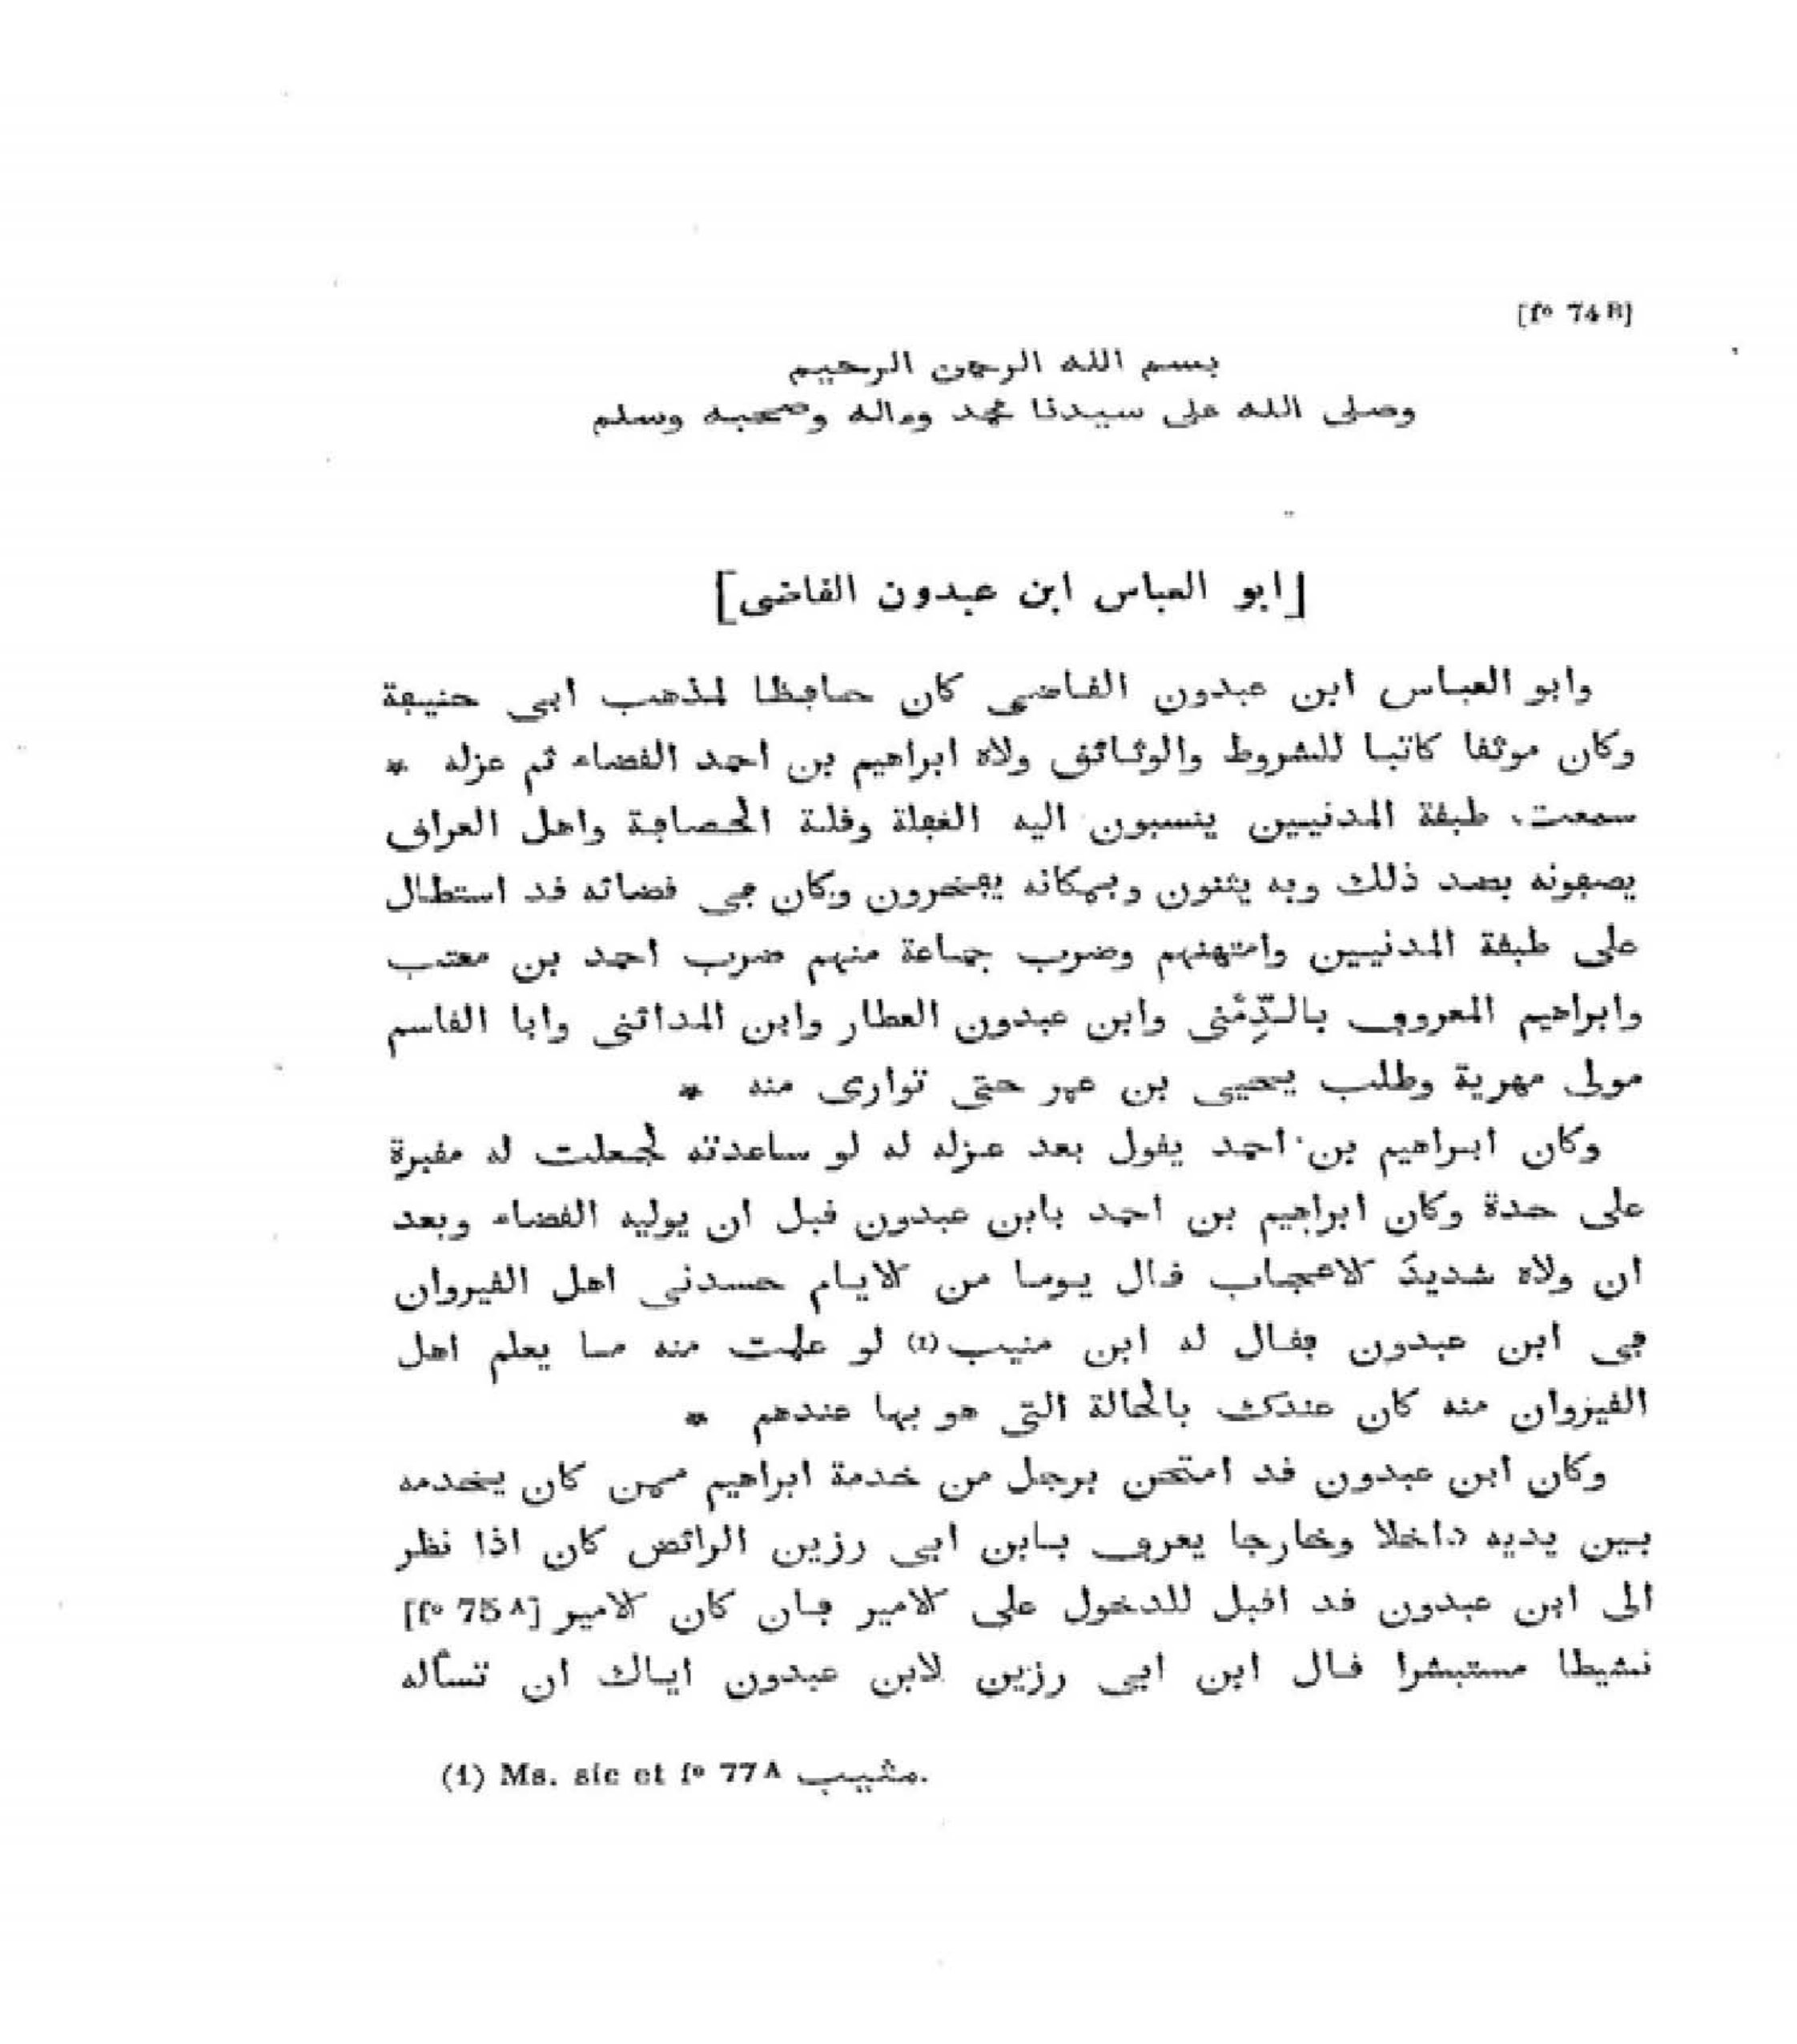 [fº 74 B]
بسم الله الرحمن الرحيم
وصلى الله على سيدنا محمد وءاله وصحبه وسلم
[ابو العباس ابن عبدون القاضى]
وابو العباس ابن عبدون القاضى كان حافظا لمذهب ابى حنيفة
وكان موثقا كاتبا للشروط والوثائق ولاه ابراهيم بن احمد القضاء ثم عزله *
سمعت طبقة المدنيين ينسبون اليه الغفلة وقلة الحصافة واهل العراق
يصفونه بضد ذلك وبه يثنون وبمكانه يفخرون وكان فى قضائه قد استطال
على طبقة المدنيين وامتهنهم وضرب جماعة منهم ضرب احمد بن معتب
وابراهيم المعروف بالدِّمَنى وابن عبدون العطار وابن المدائنى وابا القاسم
مولى مهرية وطلب يحيى بن عمر حتى توارى منه *
وكان ابراهيم بن احمد يقول بعد عزله له لو ساعدته لجعلت له مقبرة
على حدة وكان ابراهيم بن احمد بابن عبدون قبل ان يوليه القضاء وبعد
ان ولاه شديدَ الاعجاب قال يوما من الايام حسدنى اهل القيروان
فى ابن عبدون فقال له ابن منيب (1) لو علمت منه ما يعلم اهل
القيروان منه كان عندك بالحالة التى هو بها عندهم *
وكان ابن عبدون قد امتحن برجل من خدمة ابراهيم ممن كان يخدمه
بين يديه داخلا وخارجا يعرف بابن ابى رزين الرائض كان اذا نظر
الى ابن عبدون قد اقبل للدخول على الامير فان كان الامير [fº 75 A]
نشيطا مستبشرا قال ابن ابى رزين لابن عبدون اياك ان تسأله
(1) Ms. sic et fº 77 A مثيب.